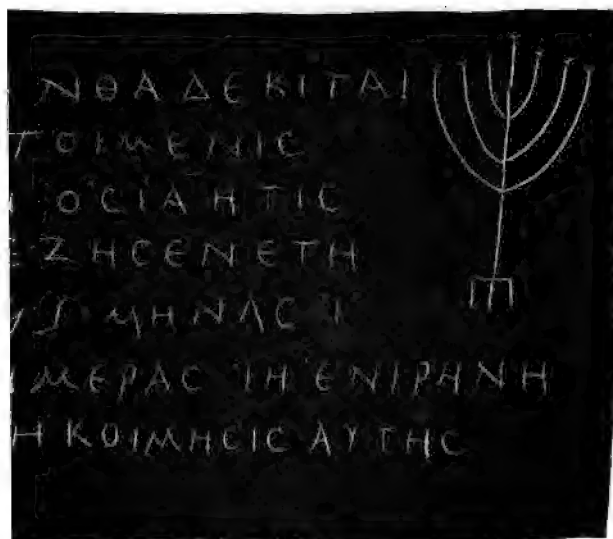 ΝΘΑΔΕΚΙΤΑΙ
ΠΟΙΜΕΝΙϹ
Η ΟϹΙΑ ΗΤΙϹ
ΕΖΗϹΕΝΕΤΗ
ΜΗΝΑϹ Ι
ΗΜΕΡΑϹ ΙΗ ΕΝΙΡΗΝΗ
Η ΚΟΙΜΗϹΙϹ ΑΥΤΗϹ